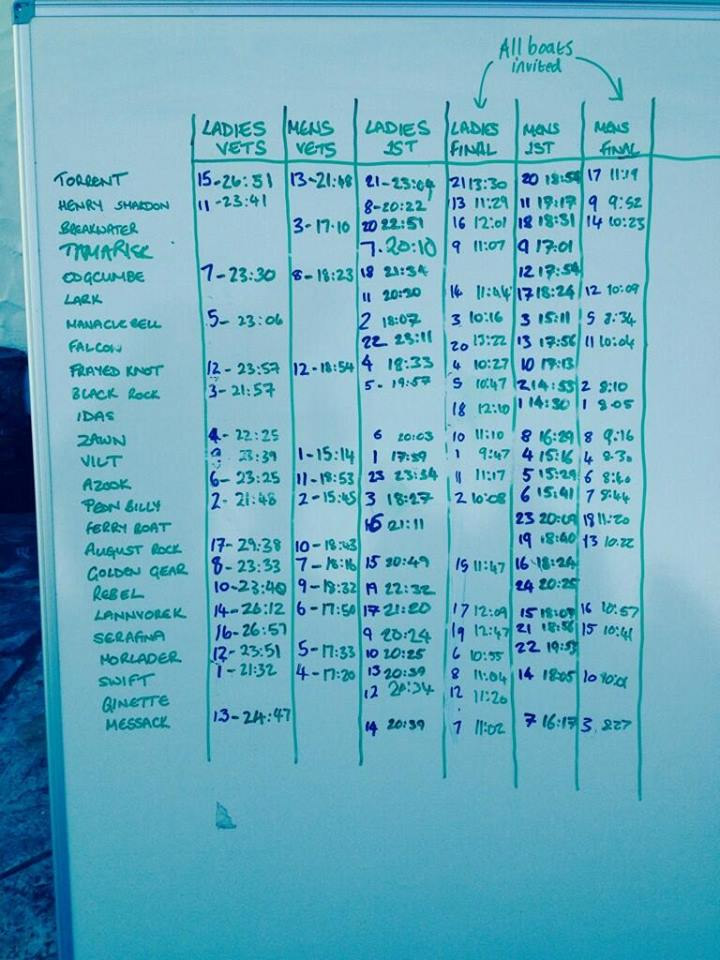 All boats
invited
LADIES VETS MENS VETS LADIES 1ST LADIES FINAL MENS 1ST MENS FINAL
TORRENT 15-26:51 13-21:48 21-23:04 21 13:30 20 18:54 17 11:19
HENRY SHARDON 11-23:41 8-20:22 13 11:29 11 17:17 9 9:52
BREAKWATER 3-17.10 20 22:51 16 12:01 18 18:31 14 10:23
TAMARISK 7.20:10 9 11:07 9 17:01
EDGCUMBE 7-23:30 8-18:23 18 21:34 12 17:54
LARK 11 20:30 14 11:44 17 18:24 12 10:09
MANACLE BELL 5-23:06 2 18:07 3 10:16 3 15:11 5 8:34
FALCON 22 23:11 20 13:22 13 17:56 11 10:04
FRAYED KNOT 12-23:57 12-18:54 4 18:33 4 10:27 10 17:13
BLACK ROCK 3-21:57 5-19:57 5 10:47 2 14:53 2 8:10
IDAS 18 12:10 1 14:30 1 8:05
ZAWN 4-22:25 6 20:03 10 11:10 8 16:29 8 9:16
VILT 23:39 1-15:14 1 17:59 1 9:47 4 15:16 4 8:30
AZOOK 6-23:25 11-18:53 23 23:34 11 11:17 5 15:29 6 8:40
PEON BILLY 2-21:48 2-15:45 3 18:27 2 10:08 6 15:41 7 8:44
FERRY BOAT 16 21:11 23 20:09 18 11:20
AUGUST ROCK 17-29:38 10-18:43 19 18:40 13 10:22
GOLDEN GEAR 8-23:33 7-18:16 15 20:49 15 11:47 16 18:24
REBEL 10-23:40 9-18:32 19 22:32 24 20:25
LANNVOREK 14-26:12 6-17:50 17 21:20 17 12:09 15 18:07 16 10:57
SERAFINA 16-26:57 9 20:24 19 12:47 21 18:56 15 10:41
MORLADER 12-23:51 5-17:33 10 20:25 6 10:55 22 19:53
SWIFT 1-21:32 4-17:20 13 20:39 8 11:04 14 18:05 10 10:01
GINETTE 12 20:34 12 11:20
MESSACK 13-24:47 14 20:39 7 11:02 7 16:17 3 8:27